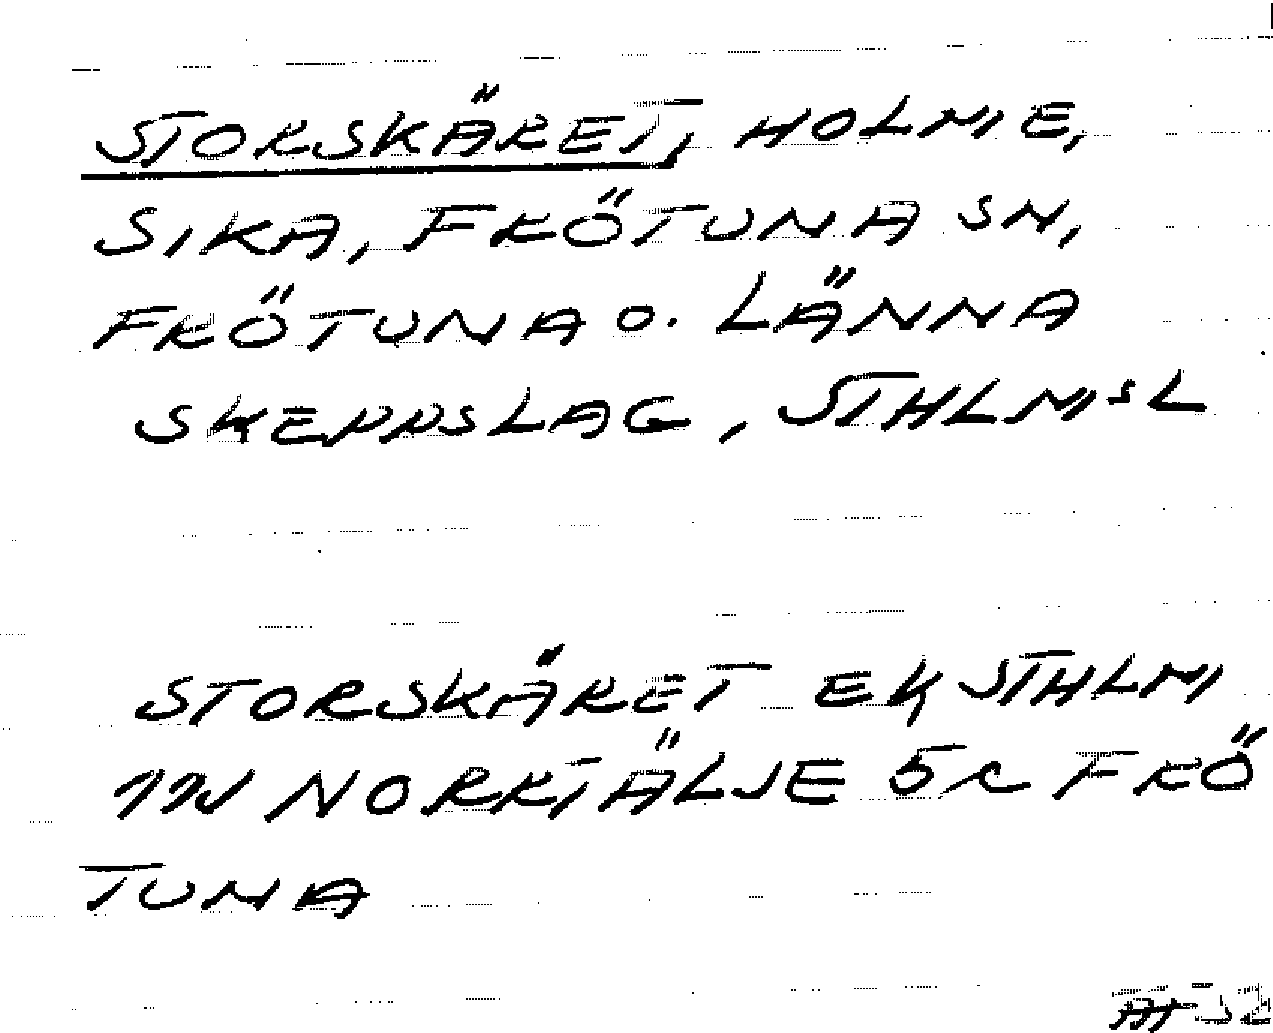 STORSKÄRET, HOLME,
SIKA, FRÖTUNA SN,
FRÖTUNA O. LÄNNA
SKEPPSLAG, STHLMSL
STORSKÄRET EK STHLM
11I NORRTÄLJE 5c FRÖ
TUNA